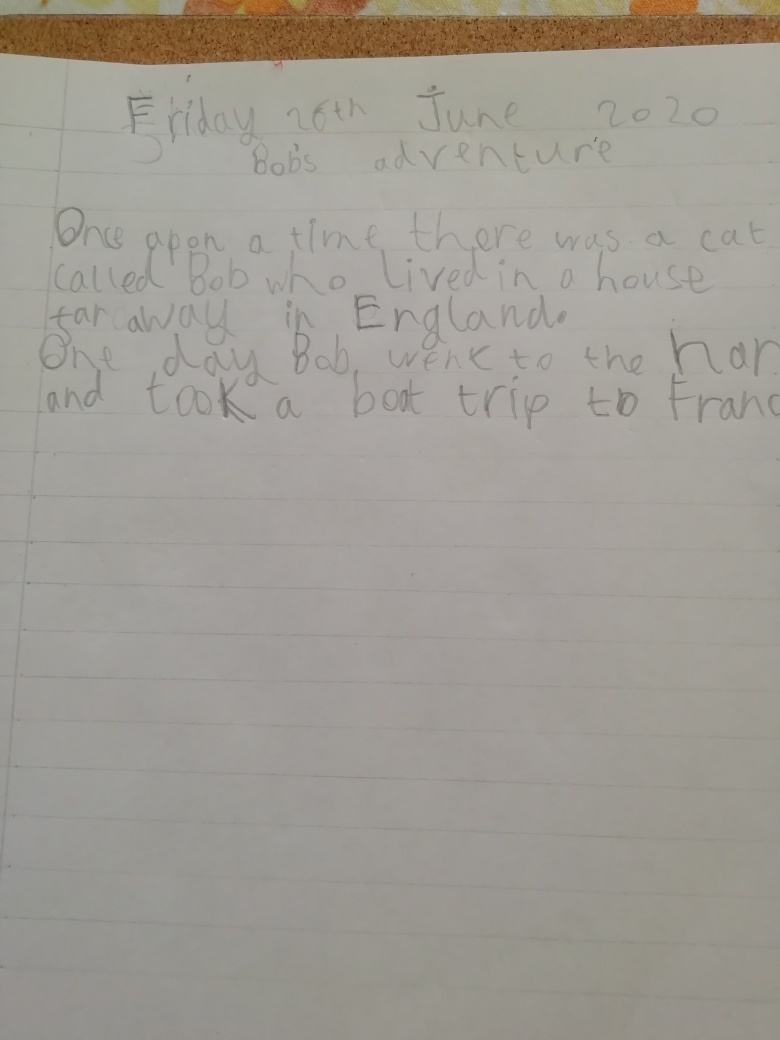 Friday 26th June 2020
Bob's adventure
Once apon a time there was a cat
called Bob who lived in a house
far away in England.
One day Bob went to the har
and took a boat trip to Franc